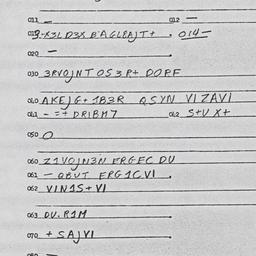 011 — 012 —
013 -X3LD3X BAGLRAJT+. 014 —
020 —
030 3RVOJNT OS3R+ DORF
040 AKEJG+ 1B3R QSYN VIZAVI
041 - =+ DRIBM7 042 S+UX+
050 O
060 Z1VOJN3N ERGEC DU
061 — QBUT ERG1CVI.
062 VIN1S+VI
063 DU. R1M
070 + SAJVI